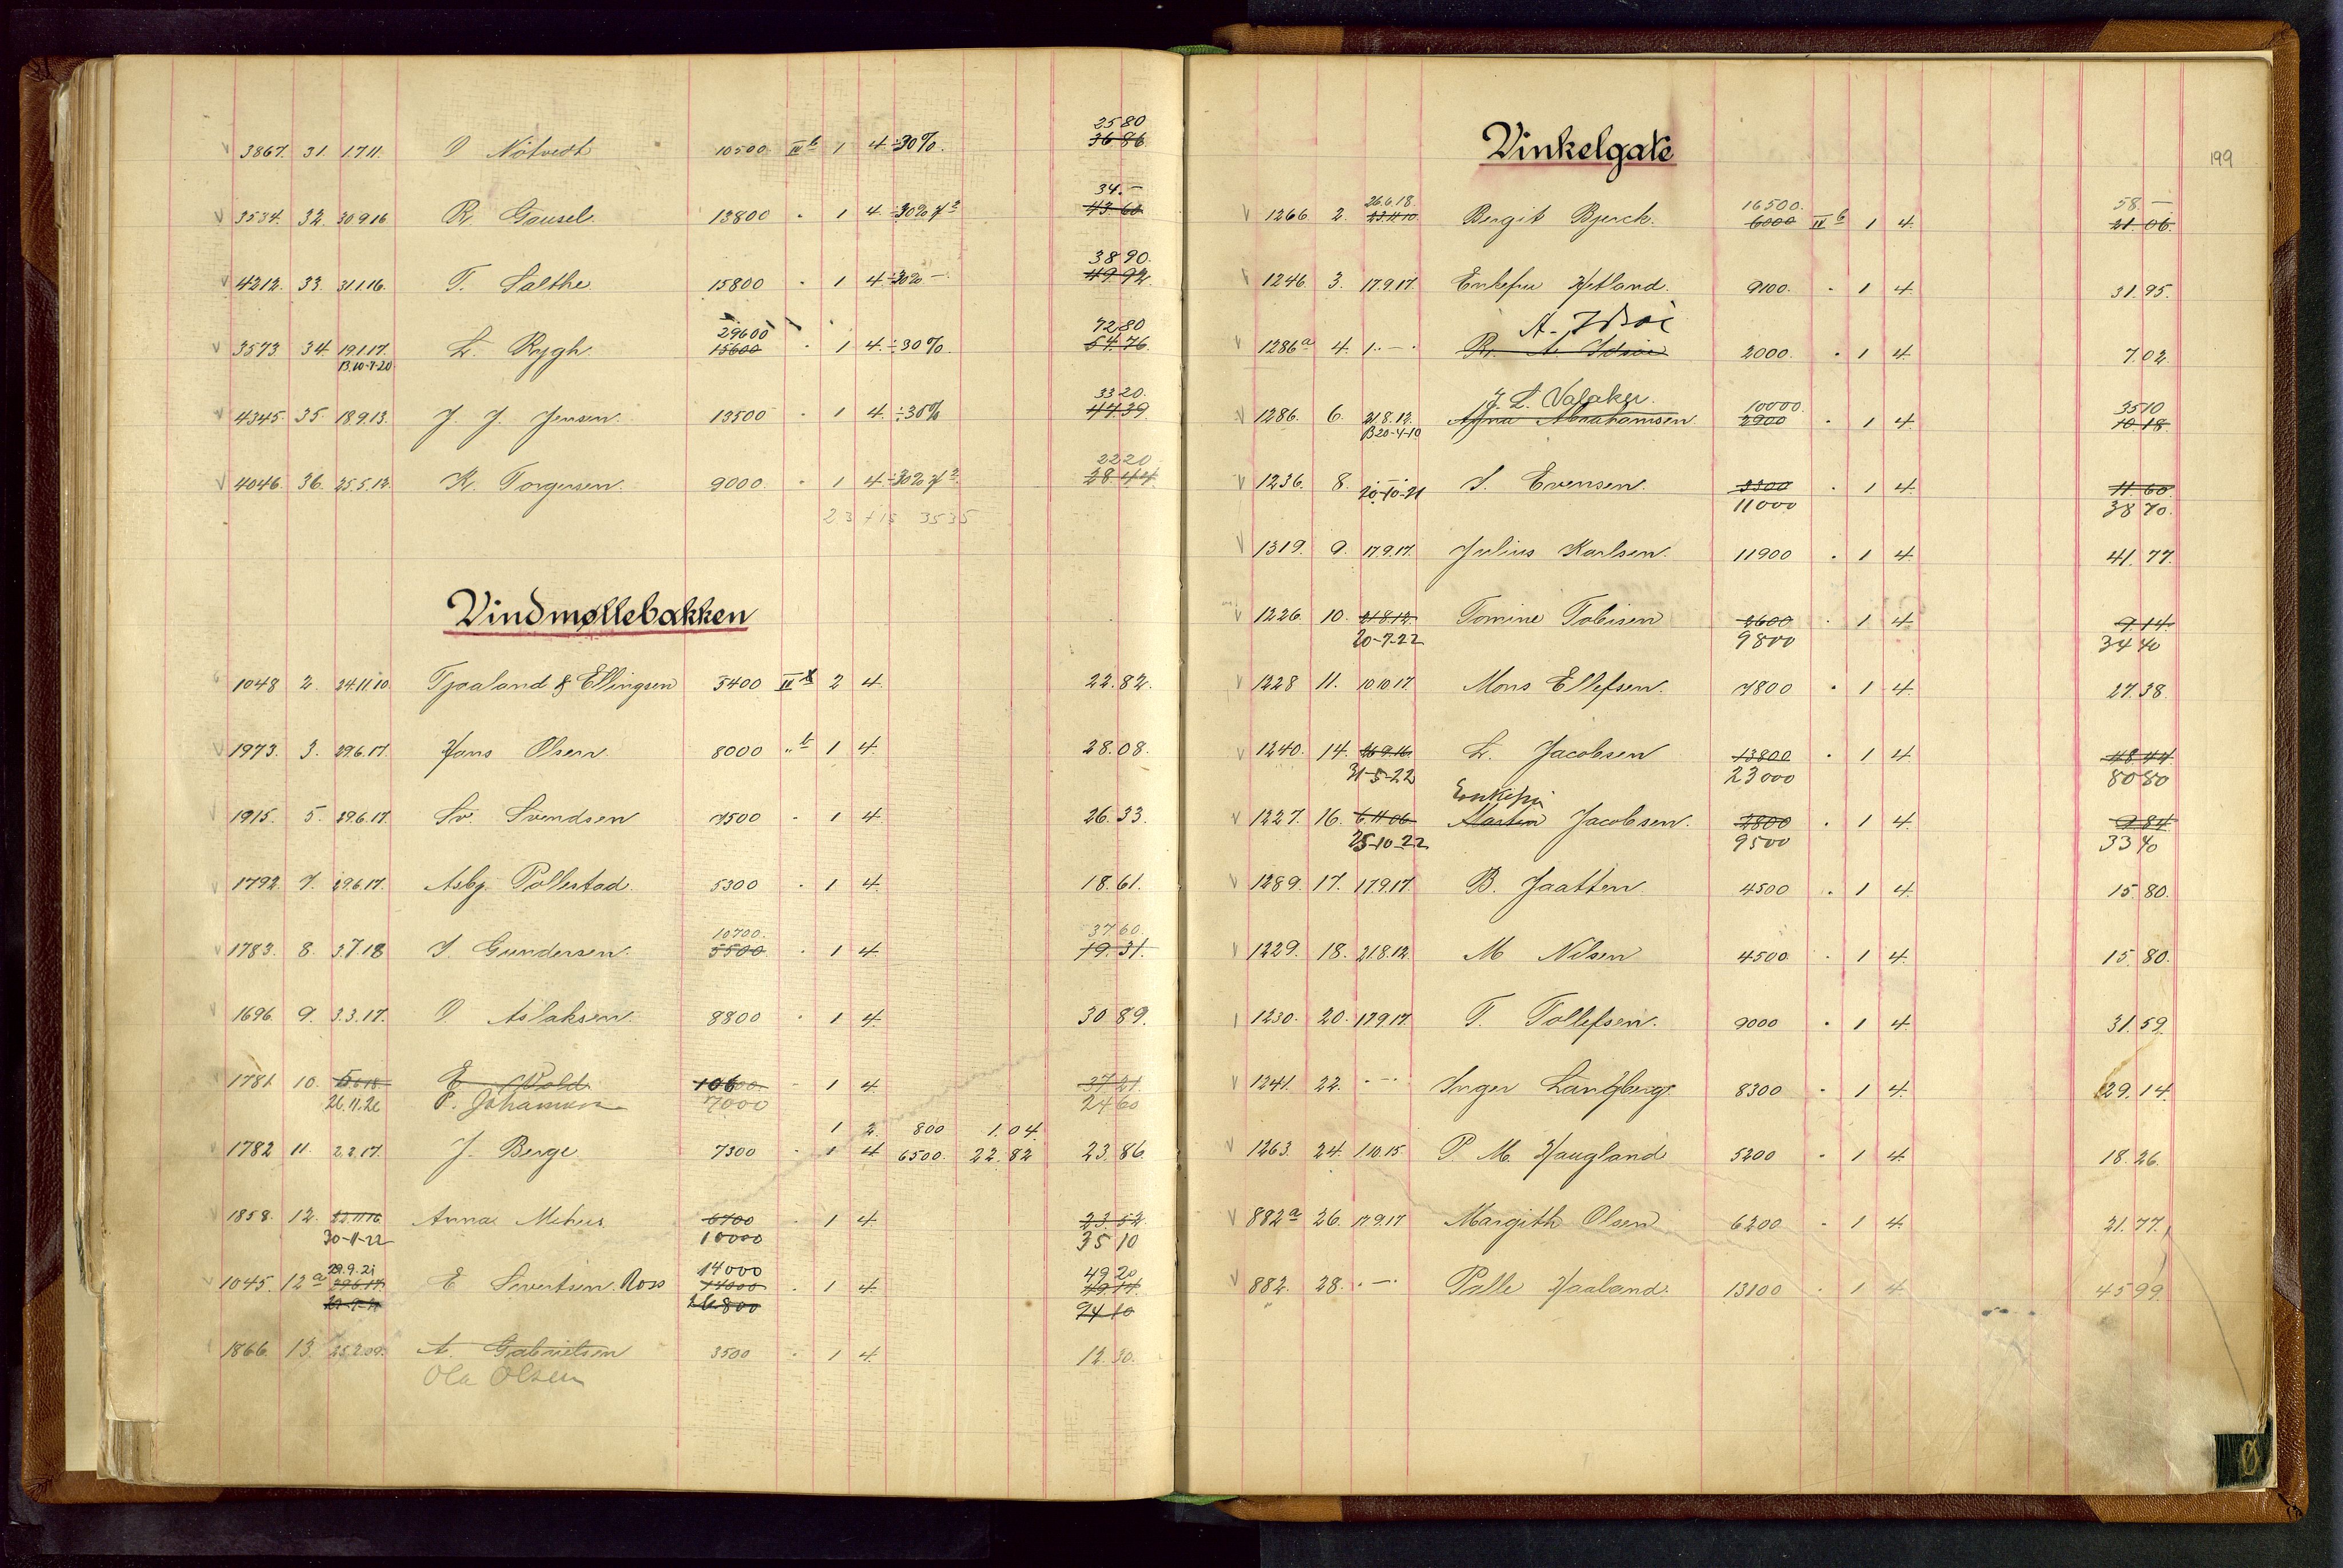 2580
V 3867. 31. 1.7.11. O Nötvedt 10500 III b 1 4 ÷30%. 3686
34.—
V 3534. 32. 30.9.16 R. Gausel. 13800 " 1 4 ÷30% 43.60
3890.
V 4212. 33. 31.1.16. T. Salthe. 15800 " 1 4 ÷30% — 4992.
29600 7280
V 3573. 34. 19.1.17. L. Rygh. 15600 " 1 4. ÷30%. 5476.
B. 10-7-20
3320.
V 4345. 35. 18.9.13. J. J. Jensen. 13500 " 1 4. ÷30% 4439
2220
V 4046. 36. 25.5.12. K. Torgersen. 9000. " 1 4 ÷30% 2844
23 + 15 3535
Vindmøllebakken
1048 2. 24.11.10. Tjaaland & Ellingsen 5400 II 2 4. 22.82.
V 1973. 3. 29.6.17. Hans Olsen. 8000 " b 1 4. 28.08.
V 1915. 5. 29.6.17. Sv. Svendsen 7500 " 1 4. 26.33.
V 1792. 7. 29.6.17. Asbj. Pollestad. 5300 " 1 4. 18.61.
10700. 3760.
V 1783. 8. 3.7.18 S. Gundersen. 5500. " 1 4. 19.31.
V 1696. 9. 3.3.17. O Aslaksen. 8800 " 1 4. 30 89.
V 1781. 10. E. Wold. 10600. " 1 4. 37 21.
26.11.26 P. Johannesen 7000 2460
1 2. 800 1.04.
V 1782 11. 2.2.17. J. Berge 7300 " 1 4 6500. 22.82 23.86
V 1858. 12. 22.11.16 Anna Mehus. 6700 " 1 4. 23.52.
30-11-22 10000 35 10
29.9.21 14000 4920
V 1045. 12 a 29.6.17. E Sivertsen. Ross 14000 " 1 4. 49 14.
26800 94 10
1866. 13. 25.2.09. A. Gabrielsen 3500 " 1 4. 12.30.
Ola Olsen
Vinkelgate
199
26.6.18. 16500. 58 —
V 1266. 2. 23.11.10 Bergit Bjerck. 6000 III b 1 4. 21.06.
V 1246. 3. 17.9.17 Enkefru Hetland. 9100. " 1 4. 31.95.
A. Idsöe
V 1286 a 4. 1. — " R. A. Idsöe 2000. " 1 4. 7.02.
J. L. Valaker. 10000. 3510
V 1286. 6. 21.8.12. Anna Abrahamsen. 2900 " 1 4. 10.18.
B 20-4-10
V 1236. 8. " — " S. Evensen. 3300 " 1 4. 11.60.
20-10-21 11000 38 70.
V 1319. 9. 17.9.17. Julius Karlsen. 11900 " 1 4. 41.77.
V 1226. 10. 21.8.12. Tomine Tobisen 2600 " 1 4. 9.14.
20-7-22 9800 34 40
V 1228 11. 10.10.17 Mons Ellefsen. 7800 " 1 4. 27.38.
V 1240. 14. 26.9.16 L. Jacobsen 13800 " 1 4. 48.44.
31-5-22 23000 80 80
Enkefru
V 1227. 16. 6.11.06. Martin Jacobsen. 2800 " 1 4. 9.84.
25-10-22 9500 33 40
V 1289. 17. 17.9.17. B. Jaatten. 4500 " 1 4. 15.80.
V 1229. 18. 21.8.12. M Nilsen 4500. " 1 4. 15.80.
1230. 20. 17.9.17. T. Tollefsen. 9000 " 1 4. 31.59.
V 1241. 22. " — " Inger Langberg. 8300 " 1 4. 29.14.
V 1263. 24. 1.10.15 P M. Haugland 5200 " 1 4. 18.26.
V 882 a 26. 17.9.17 Margith Olsen 6200 " 1 4. 21.77.
V 882. 28. " — " Palle Haaland. 13100 " 1 4. 45 99.
Ø